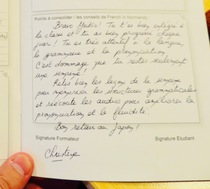 Points à consolider : les conseils de French in Normandy
Bravo ! Tu t'es bien intégré à
la classe et tu as bien progressé chaque
jour ! Tu es très attentif à la langue,
la grammaire et la prononciation.
C'est dommage que tu restes seulement
une semaine.
Relis bien les leçons de la semaine
pour mémoriser les structures grammaticales
et réécoute les audios pour améliorer la
prononciation et la fluidité.
Bon retour au Japon !
Signature Formateur
Signature Etudiant